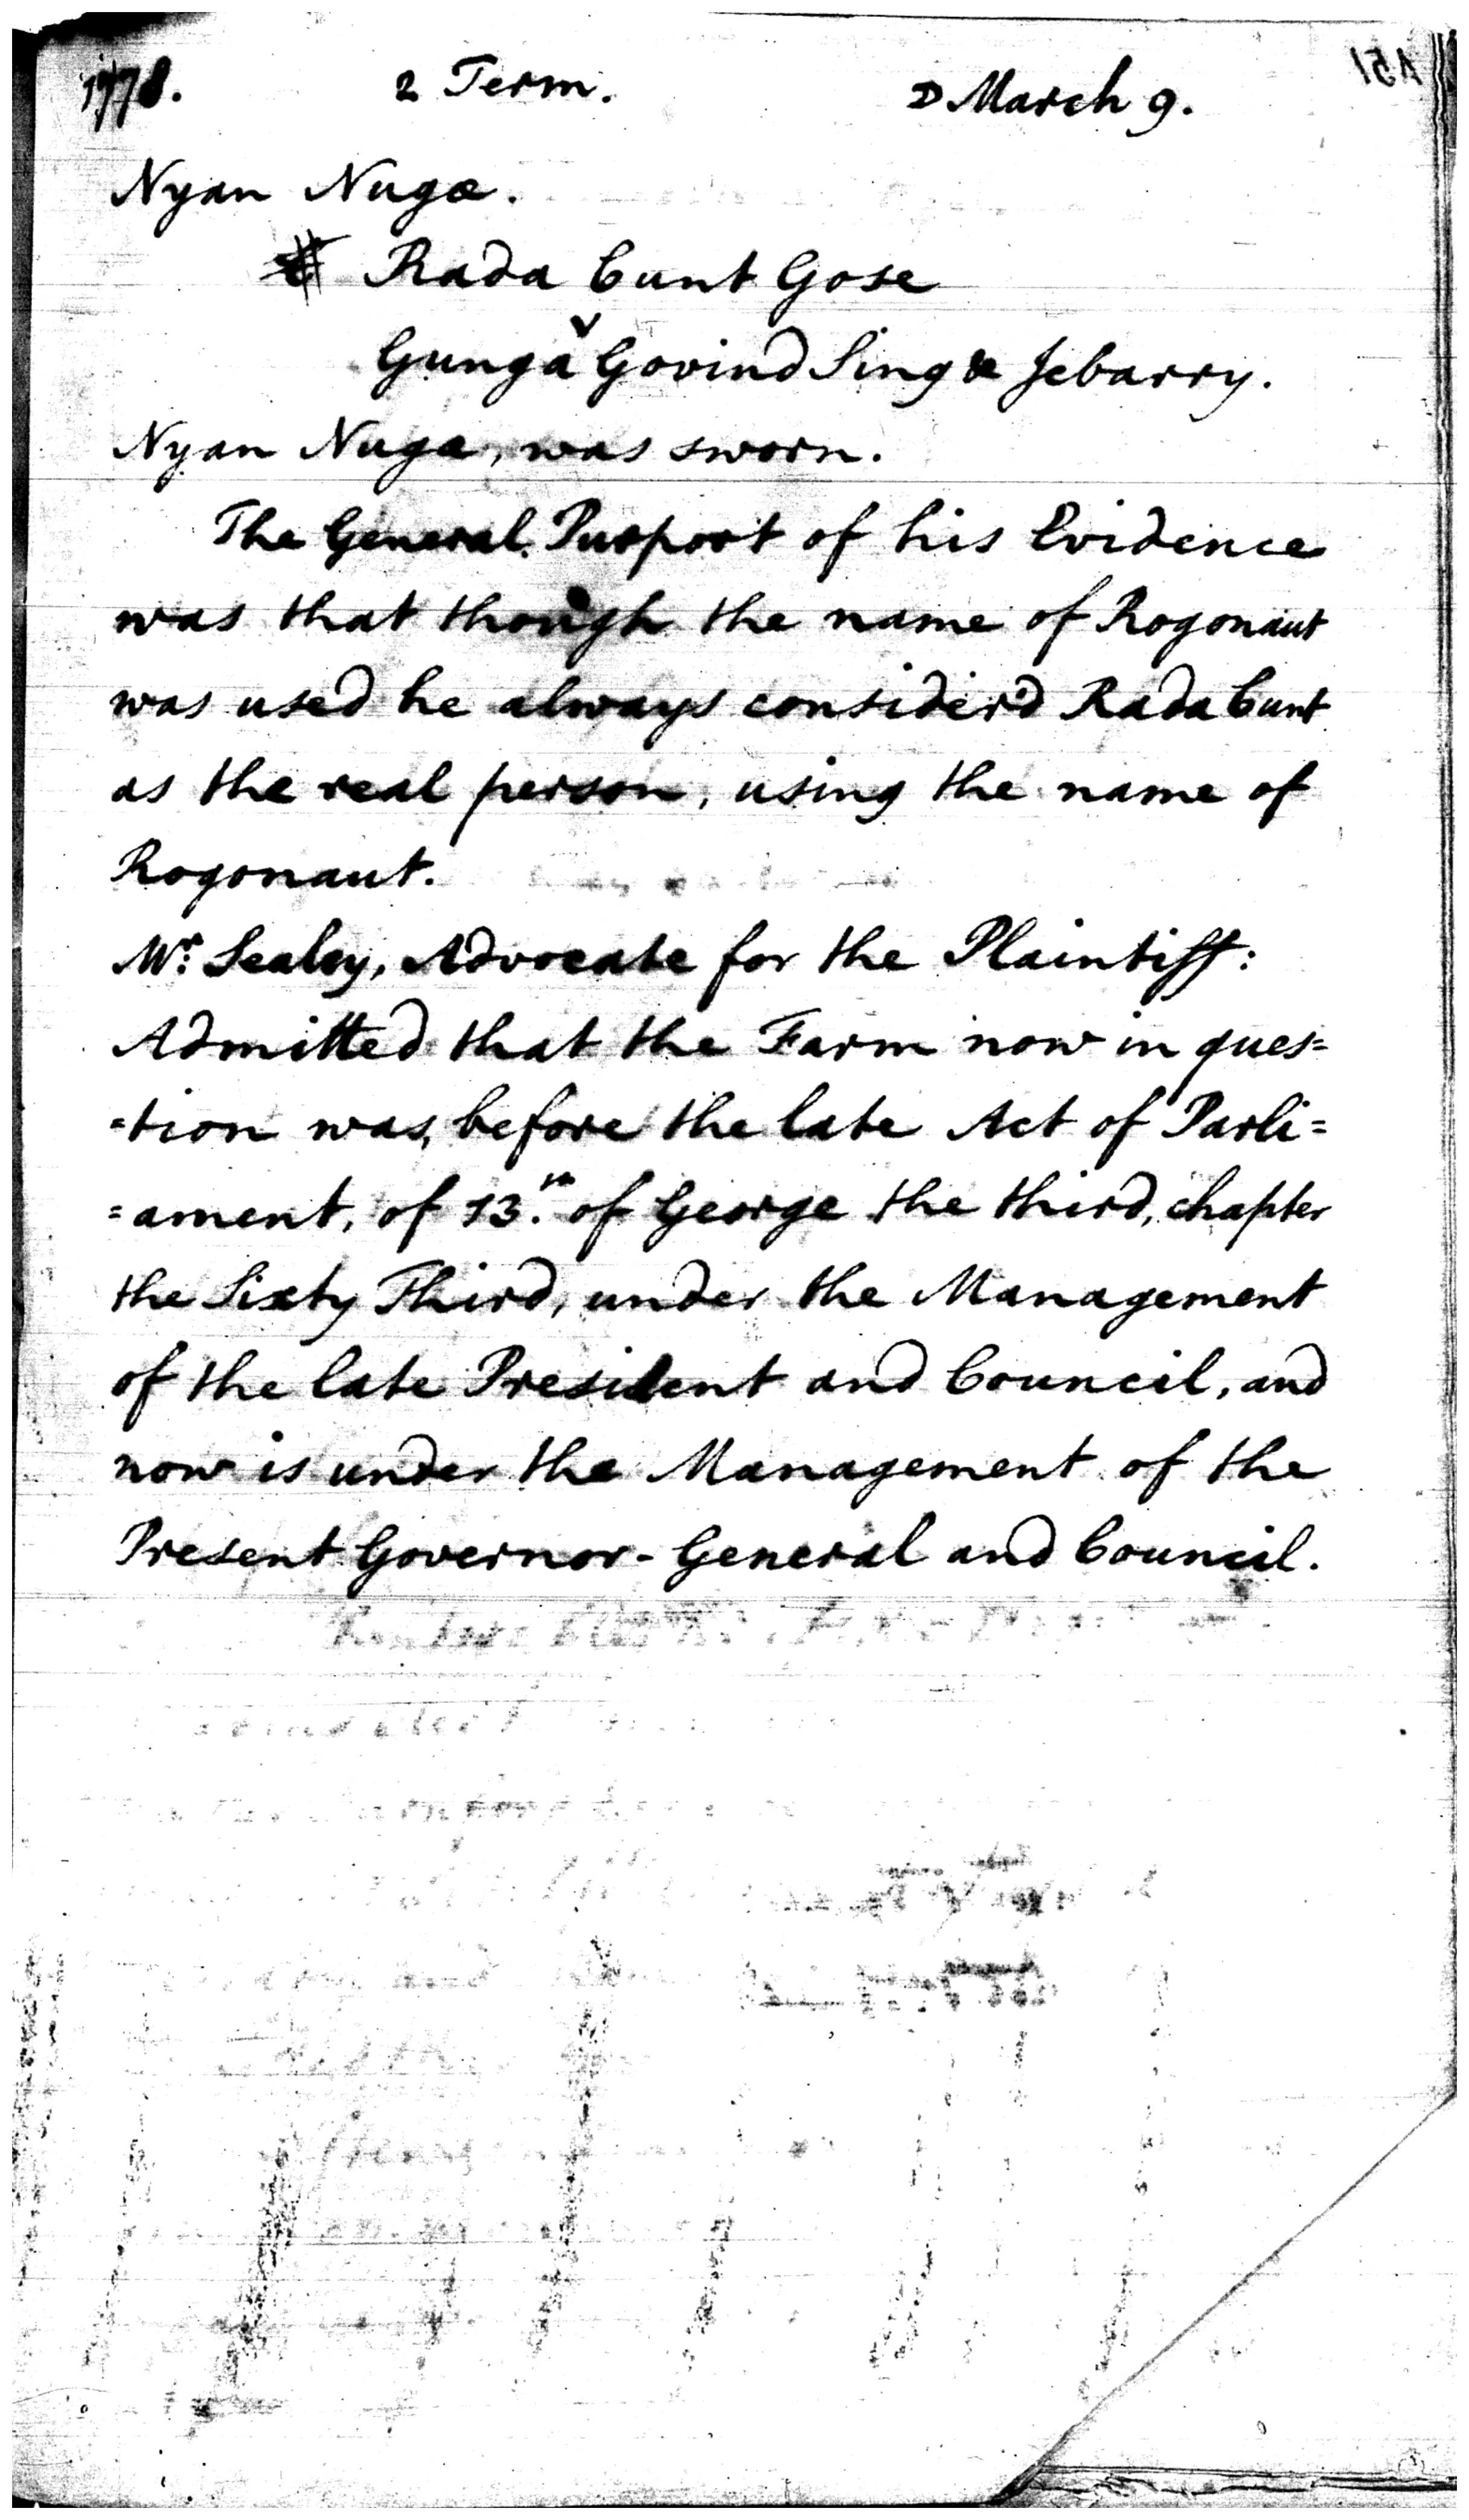 1778. 2 Term. ☽ March 9.
Nyan Nuga.
Rada Cunt Gose
v
Gunga Govind Sing & Jebarry.
Nyan Nuga, was sworn.
The General Purport of his Evidence
was that though the name of Rogonaut
was used he always consider'd Rada Cunt
as the real person, using the name of
Rogonaut.
Mr. Sealey, Advocate for the Plaintiff:
Admitted that the Farm now in ques=
=tion was, before the late Act of Parli=
=ament, of 13.th of George the third, chapter
the Sixty Third, under the Management
of the late President and Council, and
now is under the Management of the
Present Governor-General and Council.